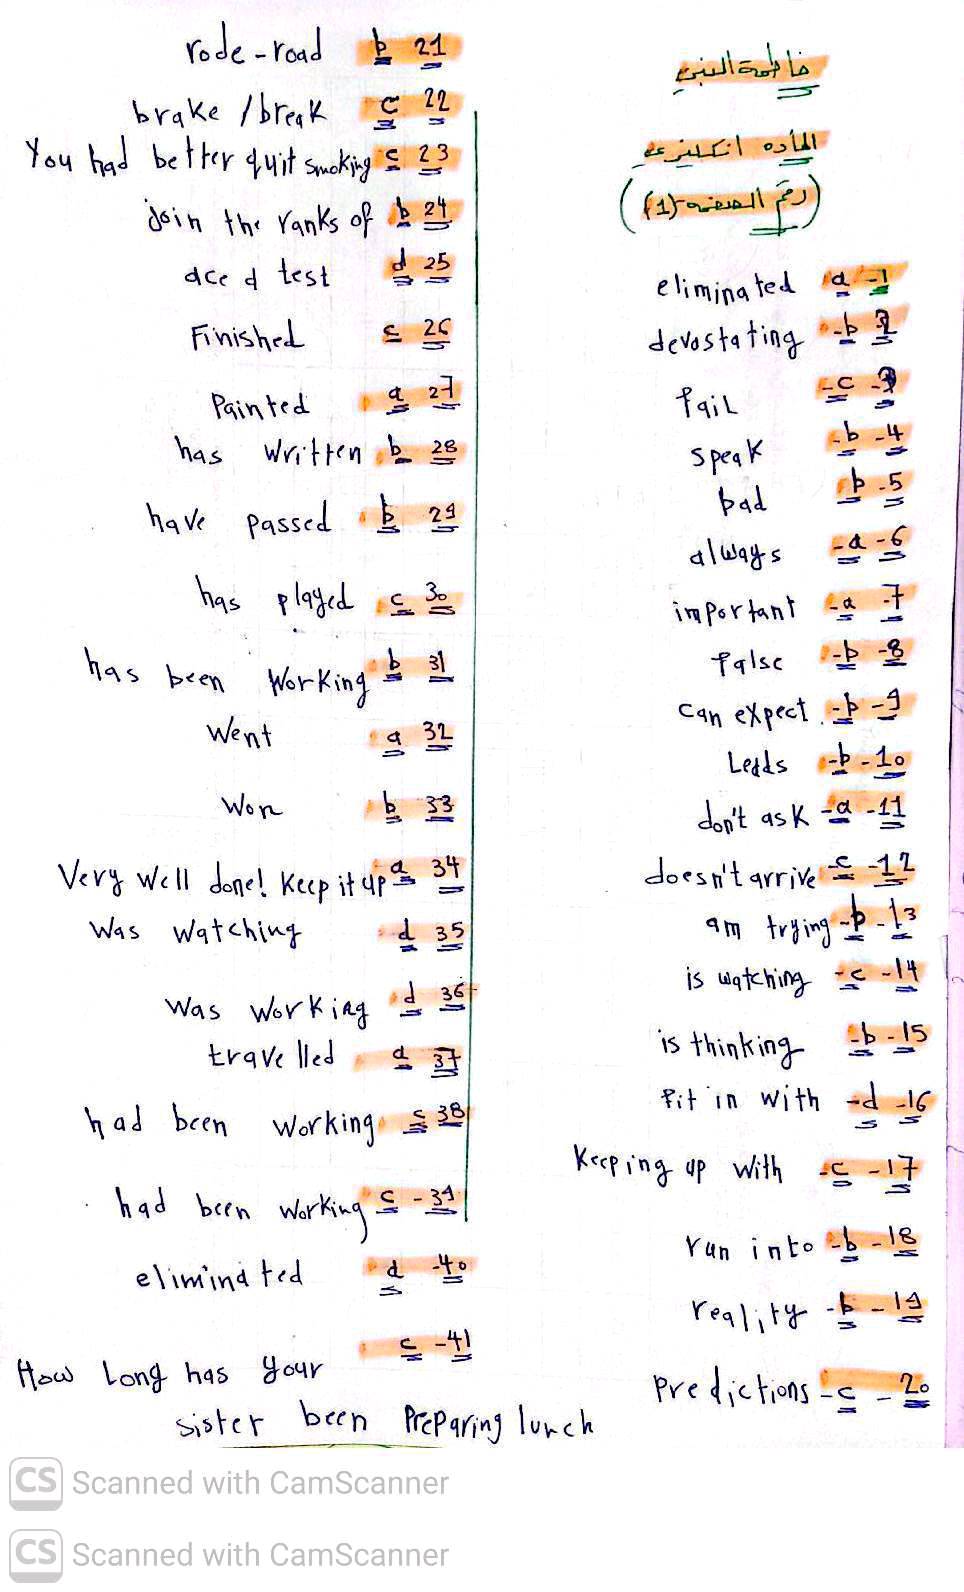 فاطمة السني
المأده انكليزي
(رقم الصفحه (1))
1- a- eliminated
2- b- devastating
3- c- fail
4- b- speak
5- b bad
6- a- always
7- a- important
8- b- false
9- b- can expect
10- b- Leads
11- a- don't ask
12- c- doesn't arrive
13- b- am trying
14- c- is watching
15- b- is thinking
16- d- fit in with
17- c- Keeping up with
18- b- run into
19- b- reality
20- c- predictions
21 b rode-road
22 c brake / break
23 c You had better quit smoking
24 b join the ranks of
25 d ace a test
26 c Finished
27 a Painted
28 b has written
29 b have passed
30 c has played
31 b has been working
32 a went
33 b won
34 a Very well done! Keep it up
35 d was watching
36 d was working
37 a travelled
38 c had been working
39- c had been working
40- a eliminated
41- c How Long has your
sister been preparing lunch
CS Scanned with CamScanner
CS Scanned with CamScanner